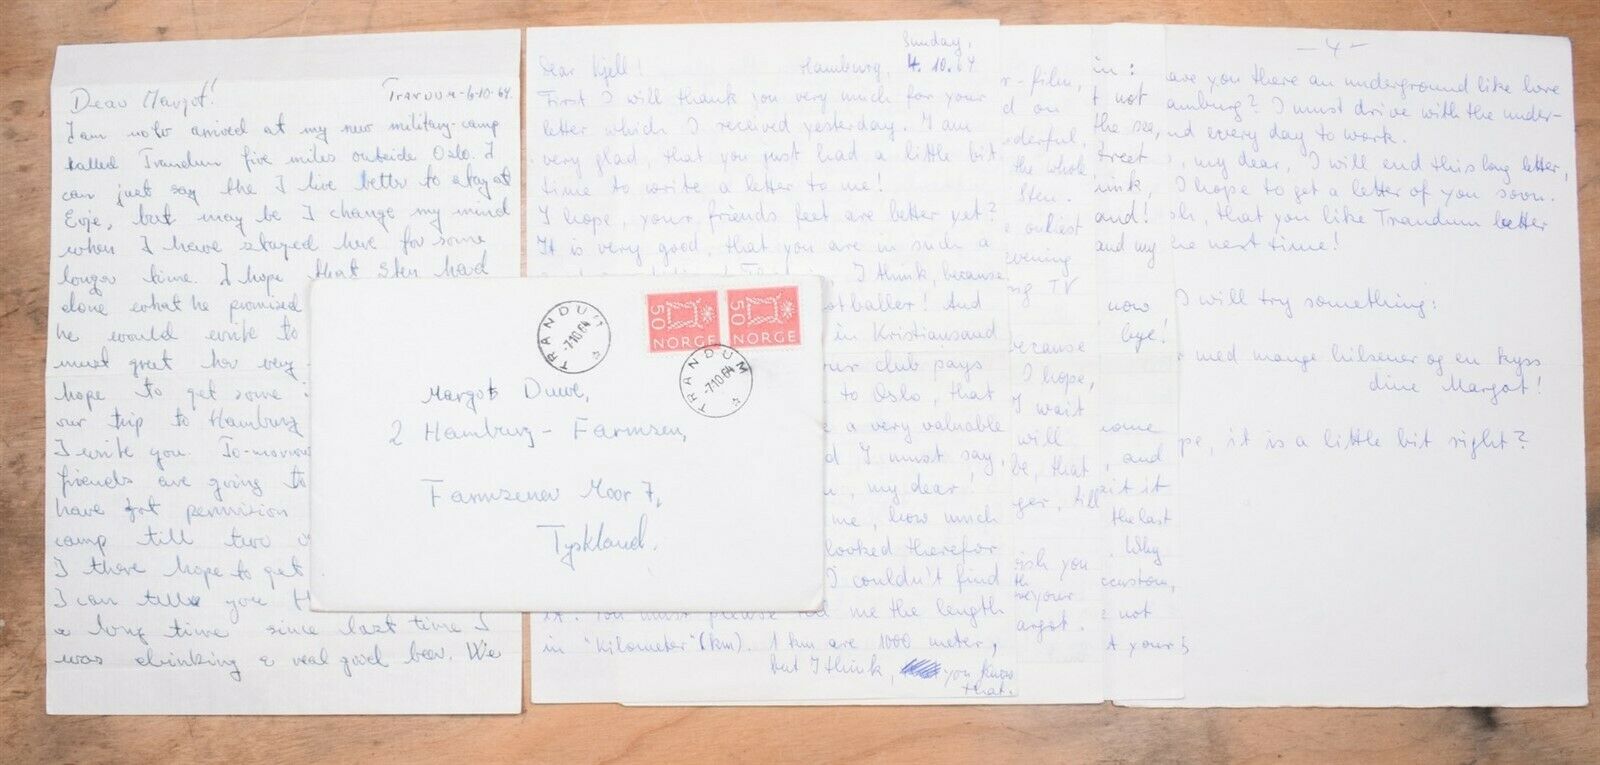 Dear Margot!
Trandum-6-10-64.
I am now arived at my new military-camp
called Trandum five miles outside Oslo. I
can just say the I live better to stay at
Evje, but may be I change my mind
when I have stayed here for some
longer time. I hope that Sten have
done what he promised
he would write to
must great her very
hope to get some
our trip to Hamburg
I write you. To-morrow
friends are going to
have got permision
camp till two
I there hope to get
I can tell you
a long time since last time I
was drinking a real good beer. We
Sunday,
Hamburg, 4.10.64
Dear Kjell!
First I will thank you very much for your
letter which I received yesterday. I am
very glad, that you just had a little bit
time to write a letter to me!
I hope, your friends feet are better yet?
It is very good, that you are in such a
I think, because
otballer! And
in Kristiansand
ur club pays
to Oslo, that
a very valuable
d I must say,
, my dear!
me, how much
looked therefor
I couldn't find
it. You must please tell me the length
in "Kilometer" (km). 1 km are 1000 meter,
but I think, you know
that.
r-film,
d on
derful,
the whole
Sten.
e outiest
vening
ng TV
ecause
I hope,
I wait
will
be, that
ger, till
ish you
the
your
argot.
in:
t not
the see,
treet
ink,
and!
and my
now
bye!
ome
, and
eit it
the last
Why
ccustom,
e not
t your
- 4 -
are you there an underground like here
amburg? I must drive with the under-
nd every day to work.
, my dear, I will end this long letter,
I hope to get a letter of you soon.
sh, that you like Trandum better
he next time!
I will try something:
r med mange hilsener og en kyss
dine Margot!
pe, it is a little bit right?
NORGE 50
NORGE 50
TRANDUM
-7.10.64
TRANDUM
-7.10.64
Margot Duwe,
2 Hamburg - Farmsen,
Farmsener Moor 7,
Tyskland.